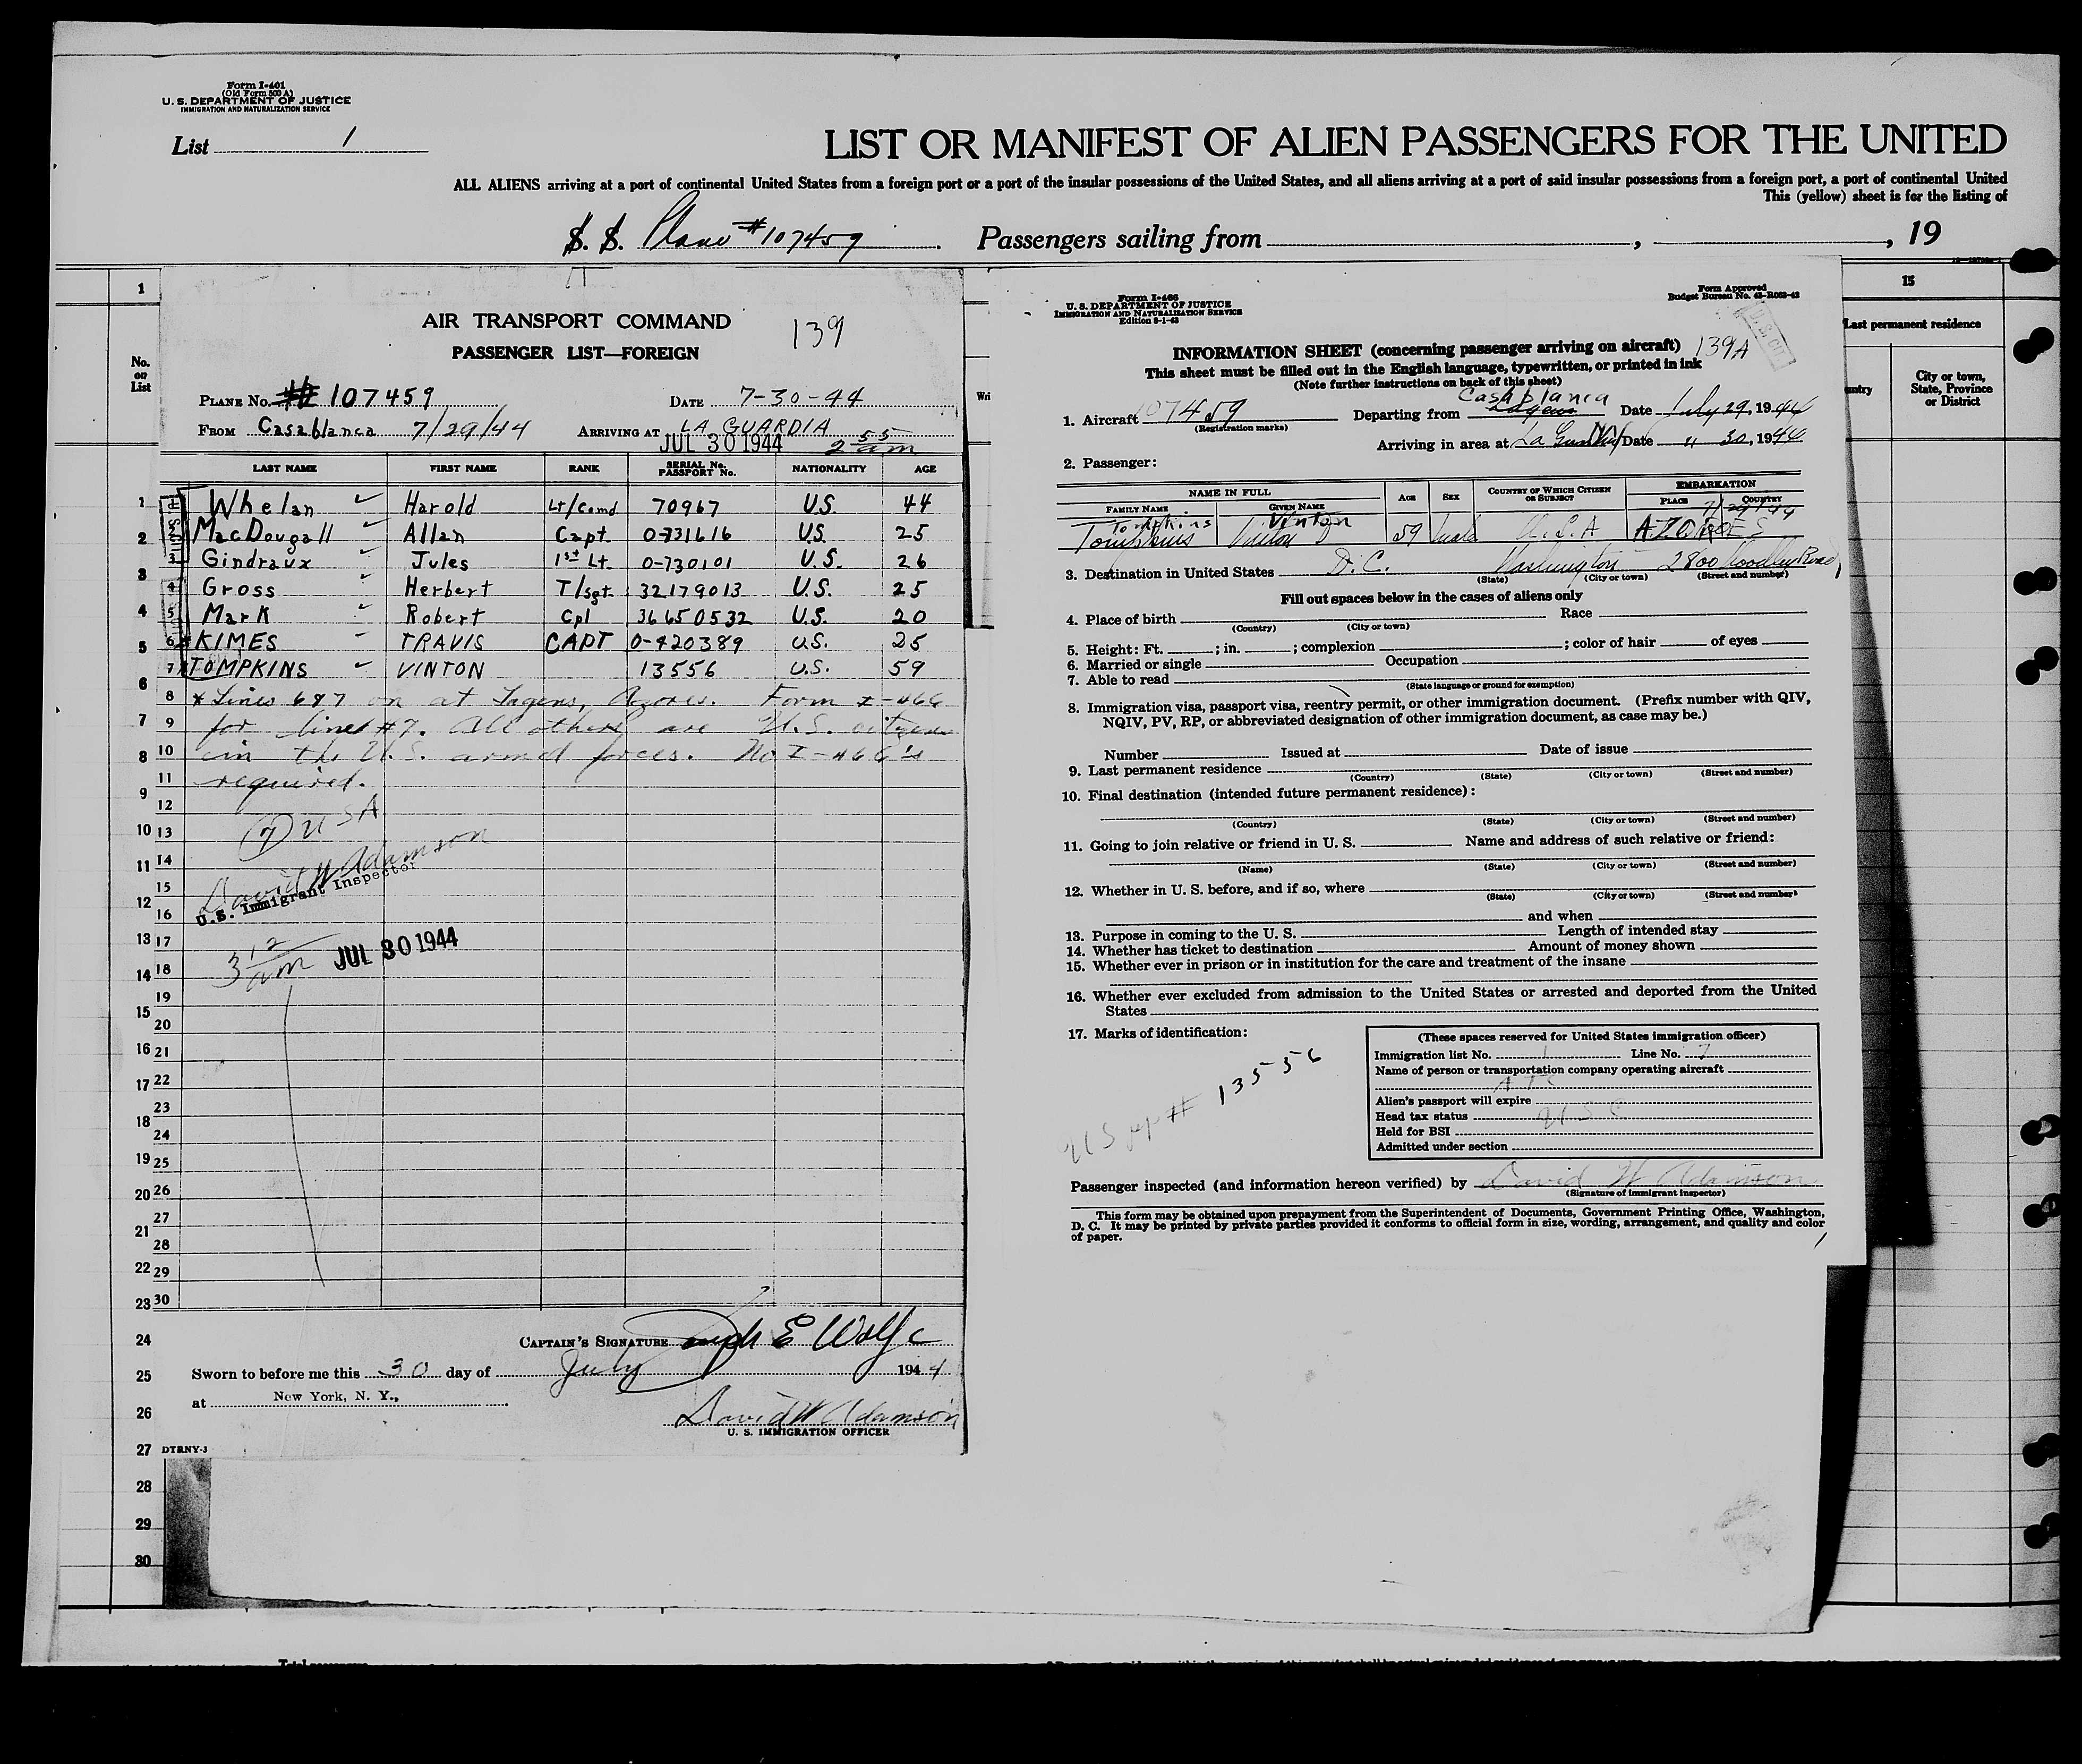 Form I-401
(Old Form 500 A)
U. S. DEPARTMENT OF JUSTICE
IMMIGRATION AND NATURALIZATION SERVICE
List 1
LIST OR MANIFEST OF ALIEN PASSENGERS FOR THE UNITED
ALL ALIENS arriving at a port of continental United States from a foreign port or a port of the insular possessions of the United States, and all aliens arriving at a port of said insular possessions from a foreign port, a port of continental United
This (yellow) sheet is for the listing of
S. S. Plane #107459. Passengers sailing from , , 19
1
No. on List
AIR TRANSPORT COMMAND 139
PASSENGER LIST—FOREIGN
PLANE No. 107459 DATE 7-30-44
FROM Casablanca 7/29/44 ARRIVING AT LA GUARDIA
JUL 30 1944 2 55 am
LAST NAME FIRST NAME RANK SERIAL No. PASSPORT No. NATIONALITY AGE
1 Whelan Harold Lt/Comd 70967 U.S. 44
2 MacDougall Allan Capt. 0-731616 U.S. 25
3 Gindraux Jules 1st Lt. 0-730101 U.S. 26
4 Gross Herbert T/sgt. 32179013 U.S. 25
5 Mark Robert Cpl 36650532 U.S. 20
6 * KIMES TRAVIS CAPT 0-420389 U.S. 25
7 * TOMPKINS VINTON 13556 U.S. 59
8 * Lines 6&7 on at Lagens, Azores. Form I-466
9 for line #7. All others are U.S. citizens
10 in the U.S. armed forces. No I-466's
11 required.
12
13 (7) USA
14 David W Adamson
15 U.S. Immigrant Inspector
16
17 3 12 am JUL 30 1944
18
19
20
21
22
23
24
25
26
27
28
29
30
CAPTAIN'S SIGNATURE Joseph E Wolfe
Sworn to before me this 30 day of July 1944
at New York, N. Y.,
David W Adamson
U. S. IMMIGRATION OFFICER
DTRNY-3
1
2
3
4
5
6
7
8
9
10
11
12
13
14
15
16
17
18
19
20
21
22
23
24
25
26
27
28
29
30
Wri
Form I-466
U. S. DEPARTMENT OF JUSTICE
IMMIGRATION AND NATURALIZATION SERVICE
Edition 6-1-43
Form Approved
Budget Bureau No. 43-R088-43
INFORMATION SHEET (concerning passenger arriving on aircraft) 139A
This sheet must be filled out in the English language, typewritten, or printed in ink
(Note further instructions on back of this sheet)
Casablanca
1. Aircraft 107459 Departing from Lagens Date July 29, 1944
(Registration marks)
Arriving in area at La Guardia Date " 30, 1944
2. Passenger:
NAME IN FULL AGE SEX COUNTRY OF WHICH CITIZEN OR SUBJECT EMBARKATION
FAMILY NAME GIVEN NAME PLACE COUNTRY
7/29/44
Tompkins Vinton
Tompkins Vinton 59 Male U.S.A AZORES
3. Destination in United States D.C. Washington 2800 Woodley Road,
(State) (City or town) (Street and number)
Fill out spaces below in the cases of aliens only
4. Place of birth Race
(Country) (City or town)
5. Height: Ft. ; in. ; complexion ; color of hair of eyes
6. Married or single Occupation
7. Able to read
(State language or ground for exemption)
8. Immigration visa, passport visa, reentry permit, or other immigration document. (Prefix number with QIV,
NQIV, PV, RP, or abbreviated designation of other immigration document, as case may be.)
Number Issued at Date of issue
9. Last permanent residence
(Country) (State) (City or town) (Street and number)
10. Final destination (intended future permanent residence):
(Country) (State) (City or town) (Street and number)
11. Going to join relative or friend in U. S. Name and address of such relative or friend:
(Name) (State) (City or town) (Street and number)
12. Whether in U. S. before, and if so, where
(State) (City or town) (Street and number)
and when
13. Purpose in coming to the U. S. Length of intended stay
14. Whether has ticket to destination Amount of money shown
15. Whether ever in prison or in institution for the care and treatment of the insane
16. Whether ever excluded from admission to the United States or arrested and deported from the United
States
17. Marks of identification:
US pp# 13556
(These spaces reserved for United States immigration officer)
Immigration list No. 1 Line No. 7
Name of person or transportation company operating aircraft
ATC
Alien's passport will expire
Head tax status USC
Held for BSI
Admitted under section
Passenger inspected (and information hereon verified) by David W Adamson
(Signature of immigrant inspector)
This form may be obtained upon prepayment from the Superintendent of Documents, Government Printing Office, Washington,
D. C. It may be printed by private parties provided it conforms to official form in size, wording, arrangement, and quality and color
of paper.
15
Last permanent residence
City or town, State, Province or District